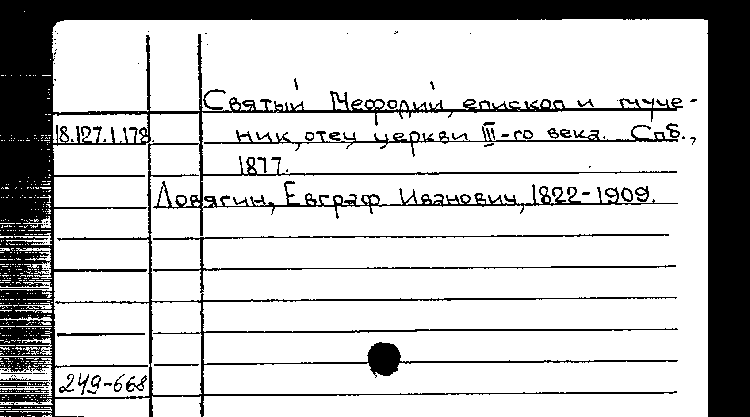 Святый Мефодий, епископ и муче-
18.127.1.178 ник, отец церкви III-го века. Спб.,
1877.
Ловягин, Евграф Иванович, 1822-1909.
249-668